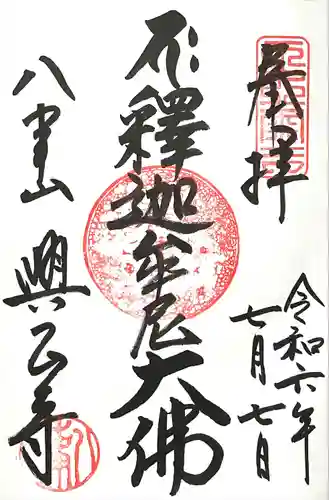 拝
令和六年
七月七日
釋迦牟尼大佛
八事山 興正寺